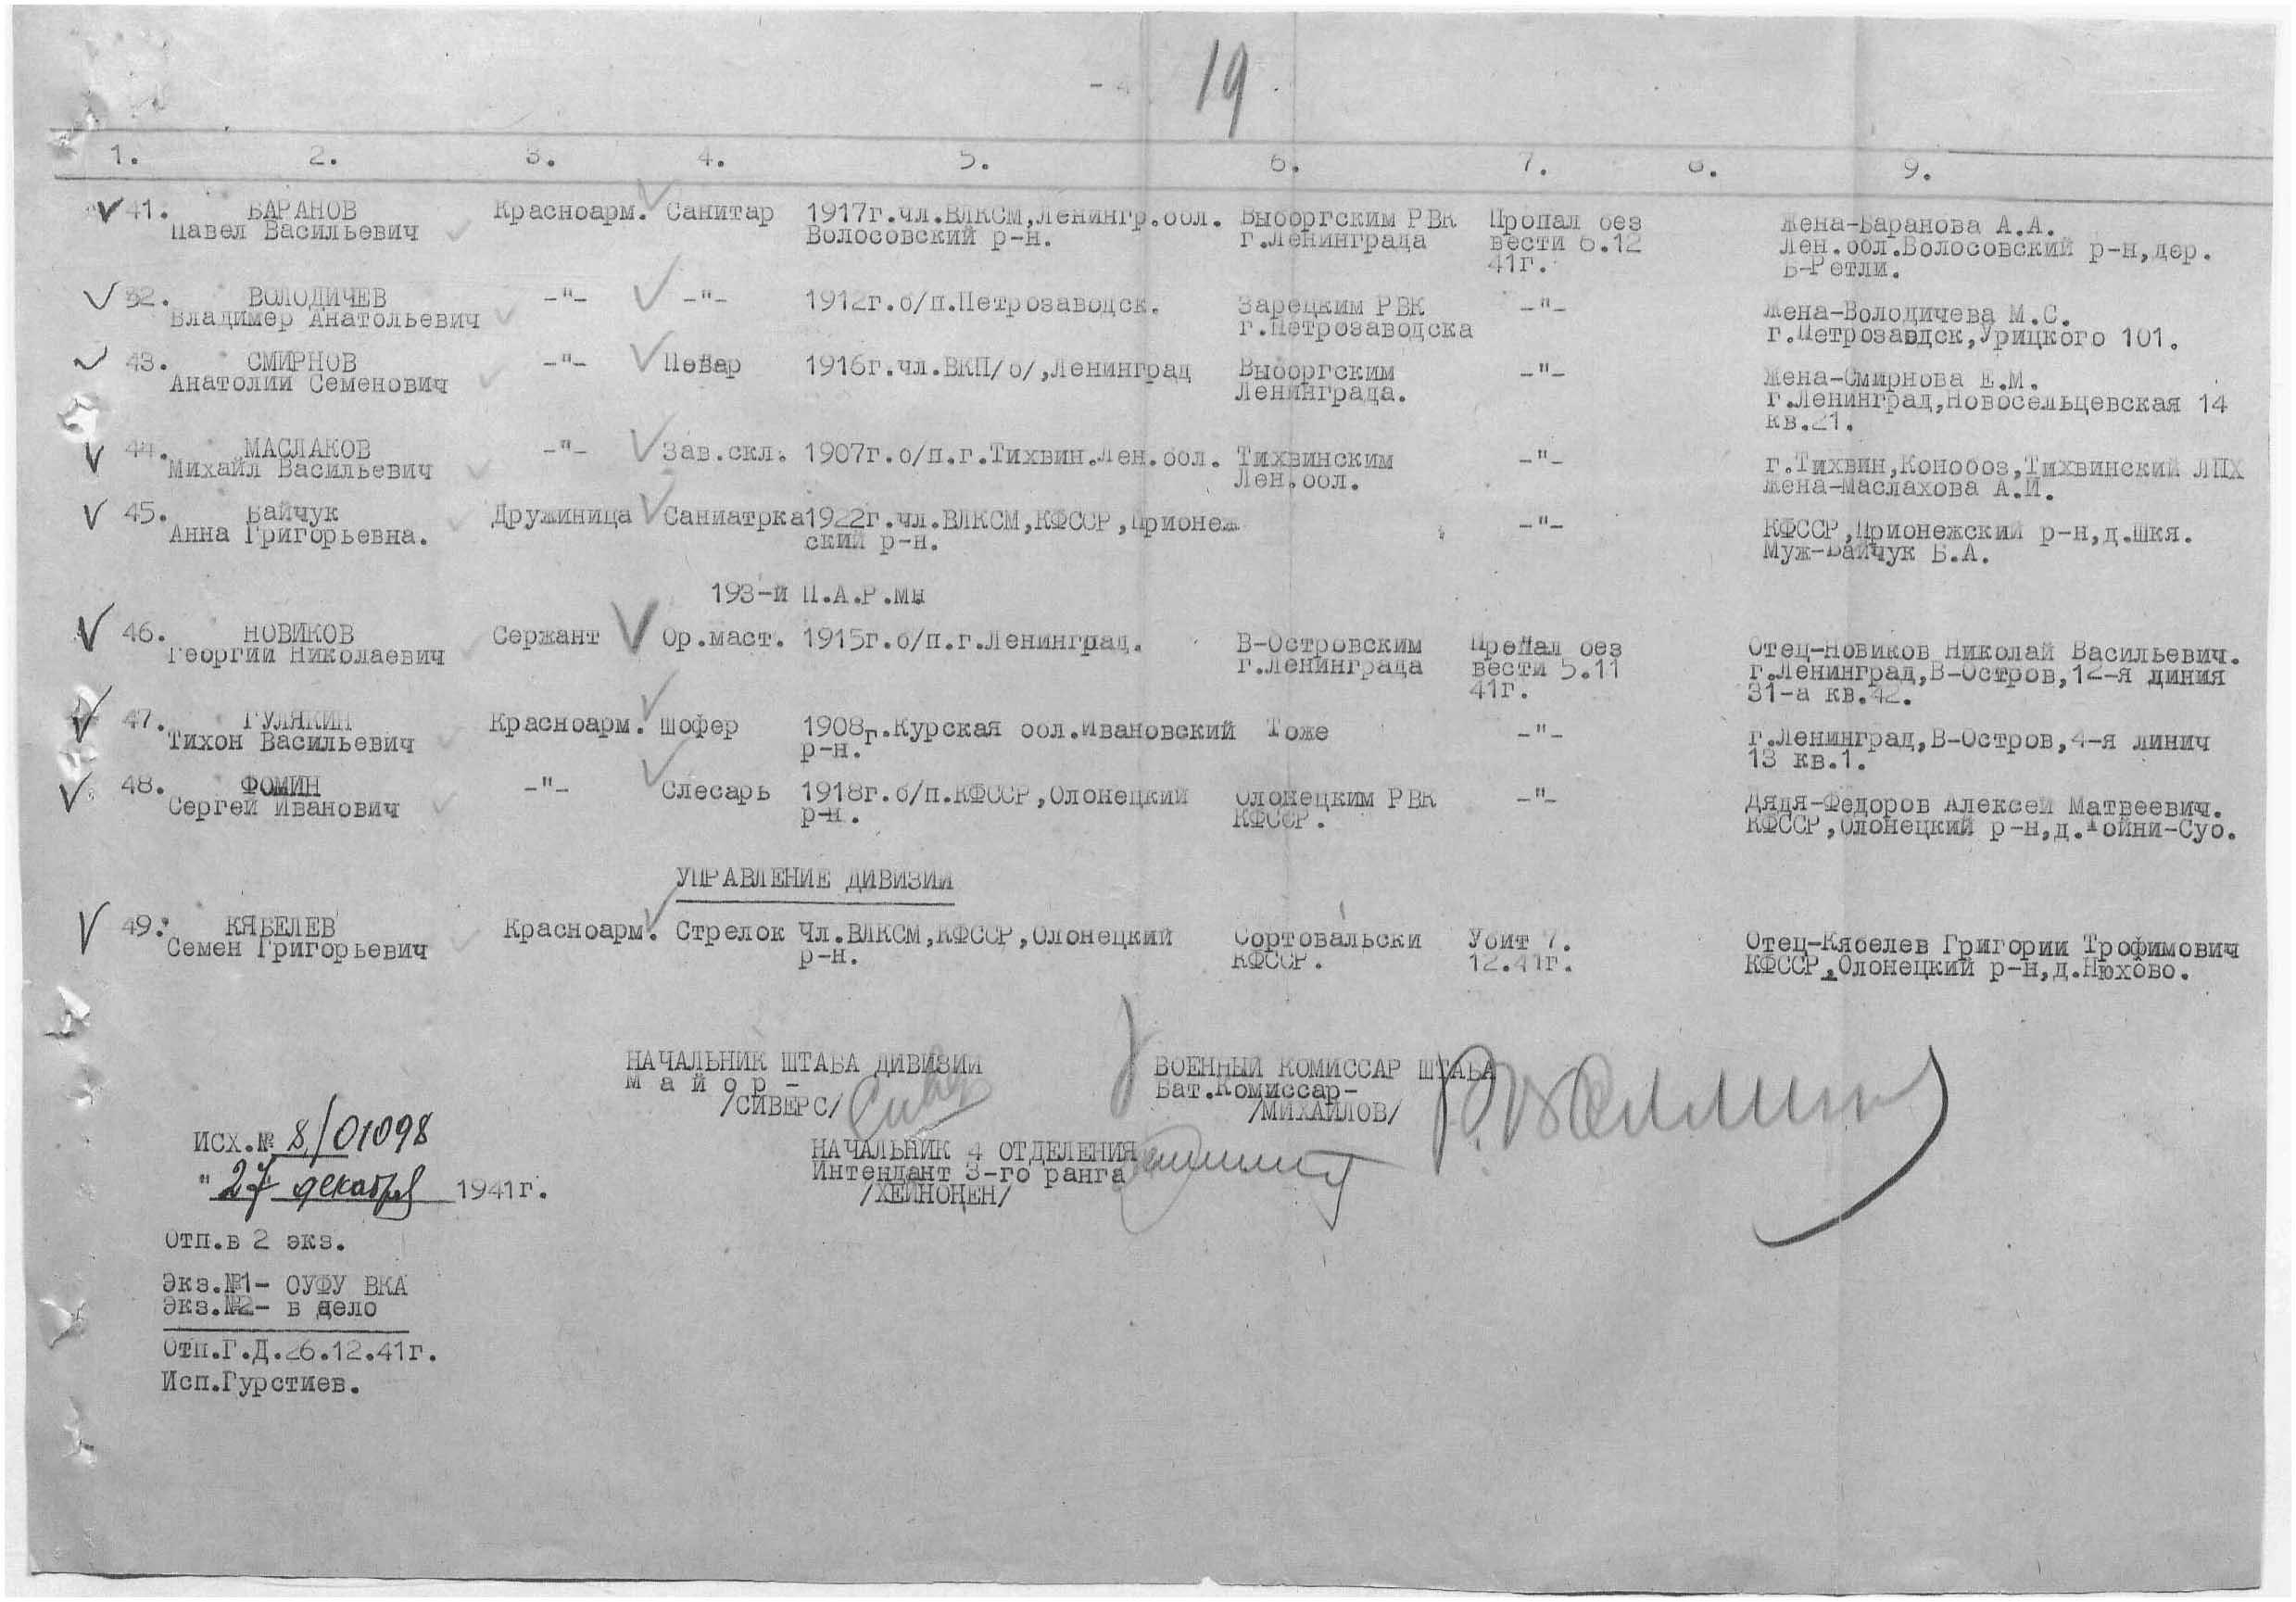 19
1. 2. 3. 4. 5. 6. 7. 8. 9.
41. БАРАНОВ Красноарм. Санитар 1917г.чл.ВЛКСМ,Ленингр.обл. Выборгским РВК Пропал без Жена-Баранова А.А.
Павел Васильевич Волосовский р-н. г.Ленинграда вести 6.12 Лен.обл.Волосовский р-н,дер.
41г. Б-Ретли.
32. ВОЛОДИЧЕВ -"- -"- 1912г.б/п.Петрозаводск. Зарецким РВК -"- Жена-Володичева М.С.
Владимер Анатольевич г.Петрозаводска г.Петрозавдск,Урицкого 101.
43. СМИРНОВ -"- Повар 1916г.чл.ВКП/б/,Ленинград Выборгским -"- Жена-Смирнова Е.М.
Анатолий Семенович Ленинграда. г.Ленинград,Новосельцевская 14
кв.21.
44. МАСЛАКОВ -"- Зав.скл. 1907г.б/п.г.Тихвин.Лен.обл. Тихвинским -"- г.Тихвин,Конобоз,Тихвинский ЛПХ
Михайл Васильевич Лен.обл. Жена-Маслахова А.И.
45. Вайчук Дружиница Саниатрка 1922г.чл.ВЛКСМ,КФССР,Прионеж -"- КФССР,Прионежский р-н,д.Шкя.
Анна Григорьевна. ский р-н. Муж-Вайчук Б.А.
193-й П.А.Р.Мы
46. НОВИКОВ Сержант Ор.маст. 1915г.б/п.г.Ленинград. В-Островским Пропал без Отец-Новиков Николай Васильевич.
Георгий Николаевич г.Ленинграда вести 5.11 г.Ленинград,В-Остров,12-я диния
41г. 31-а кв.42.
47. ГУЛЯКИН Красноарм. Шофер 1908г.Курская обл.Ивановский Тоже -"- г.Ленинград,В-Остров,4-я линич
Тихон Васильевич р-н. 13 кв.1.
48. ФОМИН -"- Слесарь 1918г.б/п.КФССР,Олонецкий Олонецким РВК -"- Дядя-Федоров Алексей Матвеевич.
Сергей Иванович р-н. КФССР. КФССР,Олонецкий р-н,д.Тойни-Суо.
УПРАВЛЕНИЕ ДИВИЗИИ
49. КЯБЕЛЕВ Красноарм. Стрелок Чл.ВЛКСМ,КФССР,Олонецкий Сортовальски Убит 7. Отец-Кябелев Григории Трофимович
Семен Григорьевич р-н. КФССР. 12.41г. КФССР,Олонецкий р-н,д.Нюхово.
НАЧАЛЬНИК ШТАБА ДИВИЗИИ ВОЕННЫЙ КОМИССАР ШТАБА
м а й о р - Бат.Комиссар-
/СИВЕРС/ /МИХАЙЛОВ/
НАЧАЛЬНИК 4 ОТДЕЛЕНИЯ
Интендант 3-го ранга
/ХЕЙНОНЕН/
ИСХ.№ 8/01098
"27 декабря 1941г.
Отп.в 2 экз.
Экз.№1- ОУФУ ВКА
Экз.№2- в дело
Отп.Г.Д.26.12.41г.
Исп.Гурстиев.